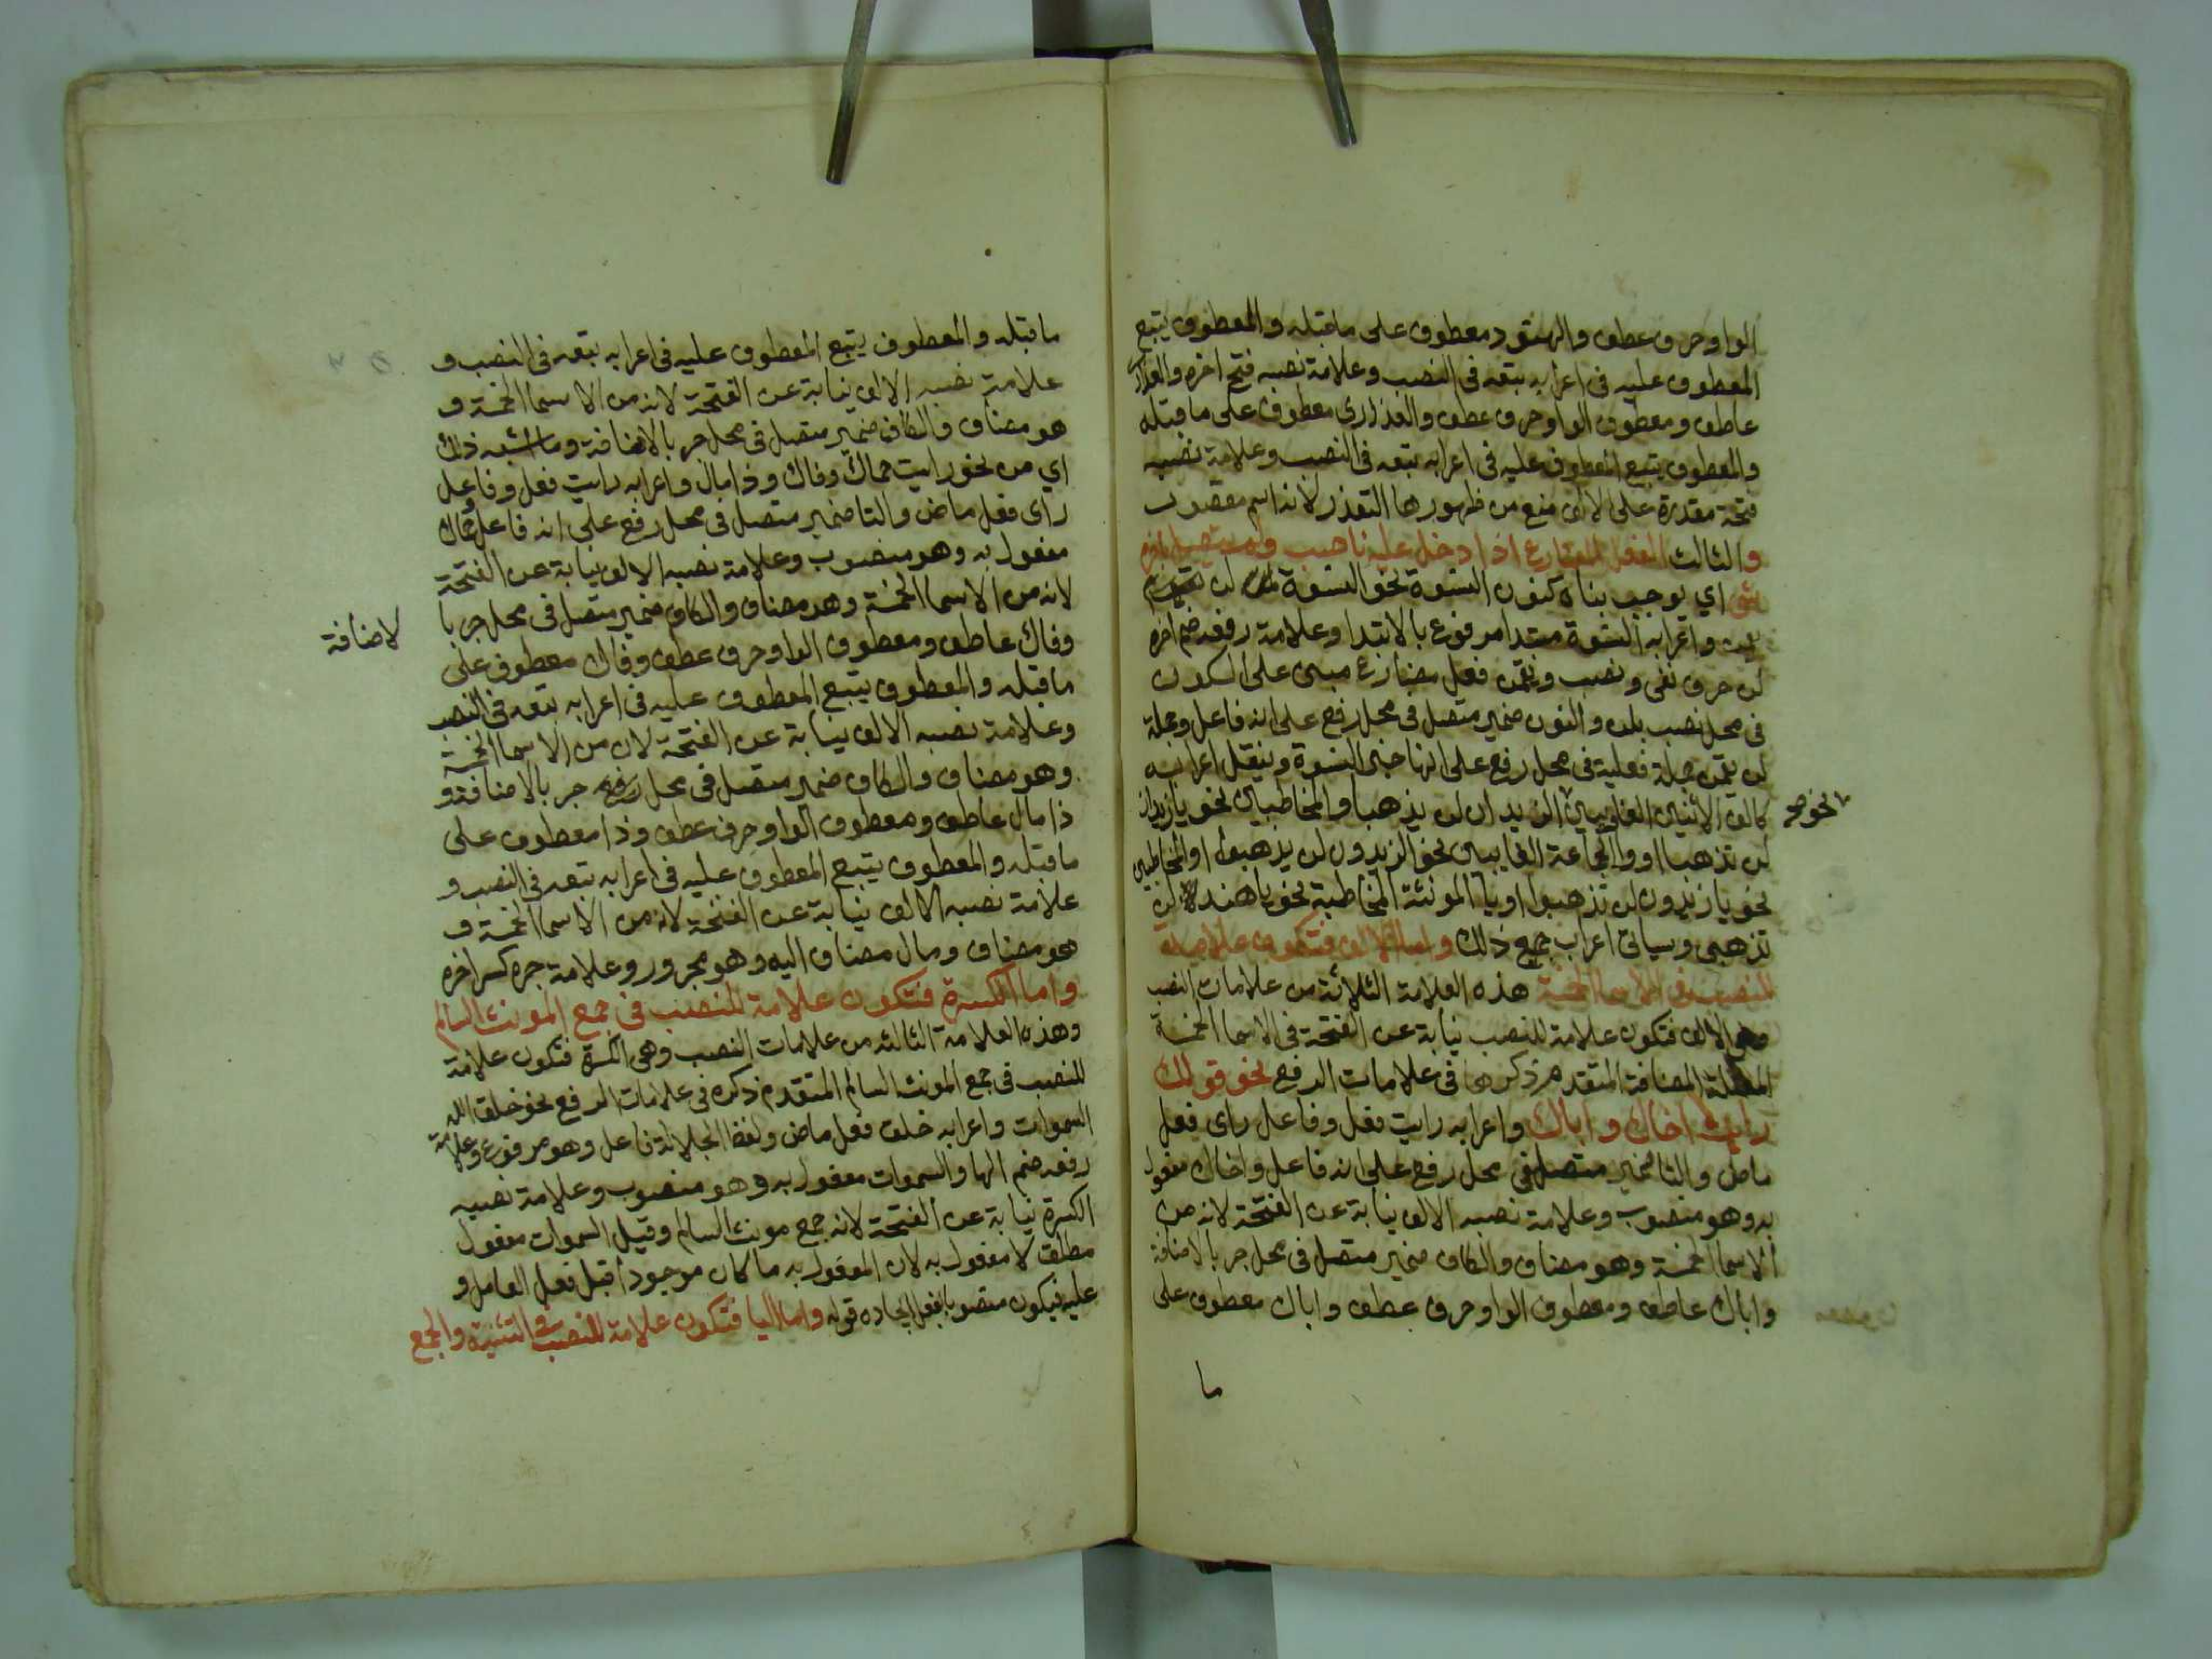 الواو حرف عطف والهنود معطوف على ما قبله والمعطوف يتبع
المعطوف عليه في اعرابه تبعه في النصب وعلامة نصبه فتح اخره والعذارى
عاطف ومعطوف الواو حرف عطف والعذارى معطوف على ما قبله
والمعطوف يتبع المعطوف عليه في اعرابه تبعه في النصب وعلامة نصبه
فتحة مقدرة على الالف منع من ظهورها التعذر لانه اسم مقصور
والثالث الفعل المضارع اذا دخل عليه ناصب ولم يتصل باخره
شي اي يوجب بناه كنون النسوة نحو النسوة لن
واعرابه النسوة مبتدا مرفوع بالابتدا وعلامة رفعه ضم اخره
لن حرف نفي ونصب ويقمن فعل مضارع مبني على السكون
في محل نصب بلن والنون ضمير متصل في محل رفع على انه فاعل وجملة
لن يقمن جملة فعلية في محل رفع على انها خبر النسوة وينقل اعرابه
كالف الاثنين الغايبين الزيدان لن يذهبا والمخاطبين نحو يا زيدان
نحو صح
لن تذهبا او واو الجماعة الغايبين نحو الزيدون لن يذهبوا او المخاطبين
نحو يا زيدون لن تذهبوا او يا المونثة المخاطبة نحو يا هند لن
تذهبي وسياتي اعراب جمع ذلك واما الالف فتكون علامة
للنصب في الاسما الخمسة هذه العلامة الثلاثة من علامات النصب
وهي الالف فتكون علامة للنصب نيابة عن الفتحة في الاسما الخمسة
المعتلة المضافة المتقدم ذكرها في علامات الرفع نحو قولك
رايت اخاك واباك واعرابه رايت فعل وفاعل راى فعل
ماض والتا ضمير متصل في محل رفع على انه فاعل واخاك مفعول
به وهو منصوب وعلامة نصبه الالف نيابة عن الفتحة لانه من
الاسما الخمسة وهو مضاف والكاف ضمير متصل في محل جر بالاضافة
واباك عاطف ومعطوف الواو حرف عطف واباك معطوف على
ما
ما قبله والمعطوف يتبع المعطوف عليه في اعرابه تبعه في النصب و
علامة نصبه الالف نيابة عن الفتحة لانه من الاسما الخمسة و
هو مضاف والكاف ضمير متصل في محل جر بالاضافة وما اشبه ذلك
اي من نحو رايت حماك وفاك وذا مال واعرابه رايت فعل وفاعل
راى فعل ماض والتا ضمير متصل في محل رفع على انه فاعل وحماك
مفعول به وهو منصوب وعلامة نصبه الالف نيابة عن الفتحة
لانه من الاسما الخمسة وهو مضاف والكاف ضمير متصل في محل جر با
لاضافة
وفاك عاطف ومعطوف الواو حرف عطف وفاك معطوف على
ما قبله والمعطوف يتبع المعطوف عليه في اعرابه تبعه في النصب
وعلامة نصبه الالف نيابة عن الفتحة لان من الاسما الخمسة
وهو مضاف والكاف ضمير متصل في محل رفع جر بالاضافة و
ذا مال عاطف ومعطوف الواو حرف عطف وذا معطوف على
ما قبله والمعطوف يتبع المعطوف عليه في اعرابه تبعه في النصب و
علامة نصبه الالف نيابة عن الفتحة لانه من الاسما الخمسة و
هو مضاف ومال مضاف اليه وهو مجرور وعلامة جره كسر اخره
واما الكسرة فتكون علامة للنصب في جمع المونث السالم
وهذه العلامة الثالثه من علامات النصب وهي الكسرة فتكون علامة
للنصب في جمع المونث السالم المتقدم ذكره في علامات الرفع نحو خلق الله
السموات واعرابه خلق فعل ماض ولفظ الجلالة فاعل وهو مرفوع وعلامة
رفعه ضم الها والسموات مفعول به وهو منصوب وعلامة نصبه
الكسرة نيابة عن الفتحة لانه جمع مونث السالم وقيل السموات مفعول
مطلق لا مفعول به لان المفعول به ما كان موجودا قبل فعل العامل و
عليه فيكون منصوبا بفعل ايجاده قوله واما اليا فتكون علامة للنصب في التثنية والجمع